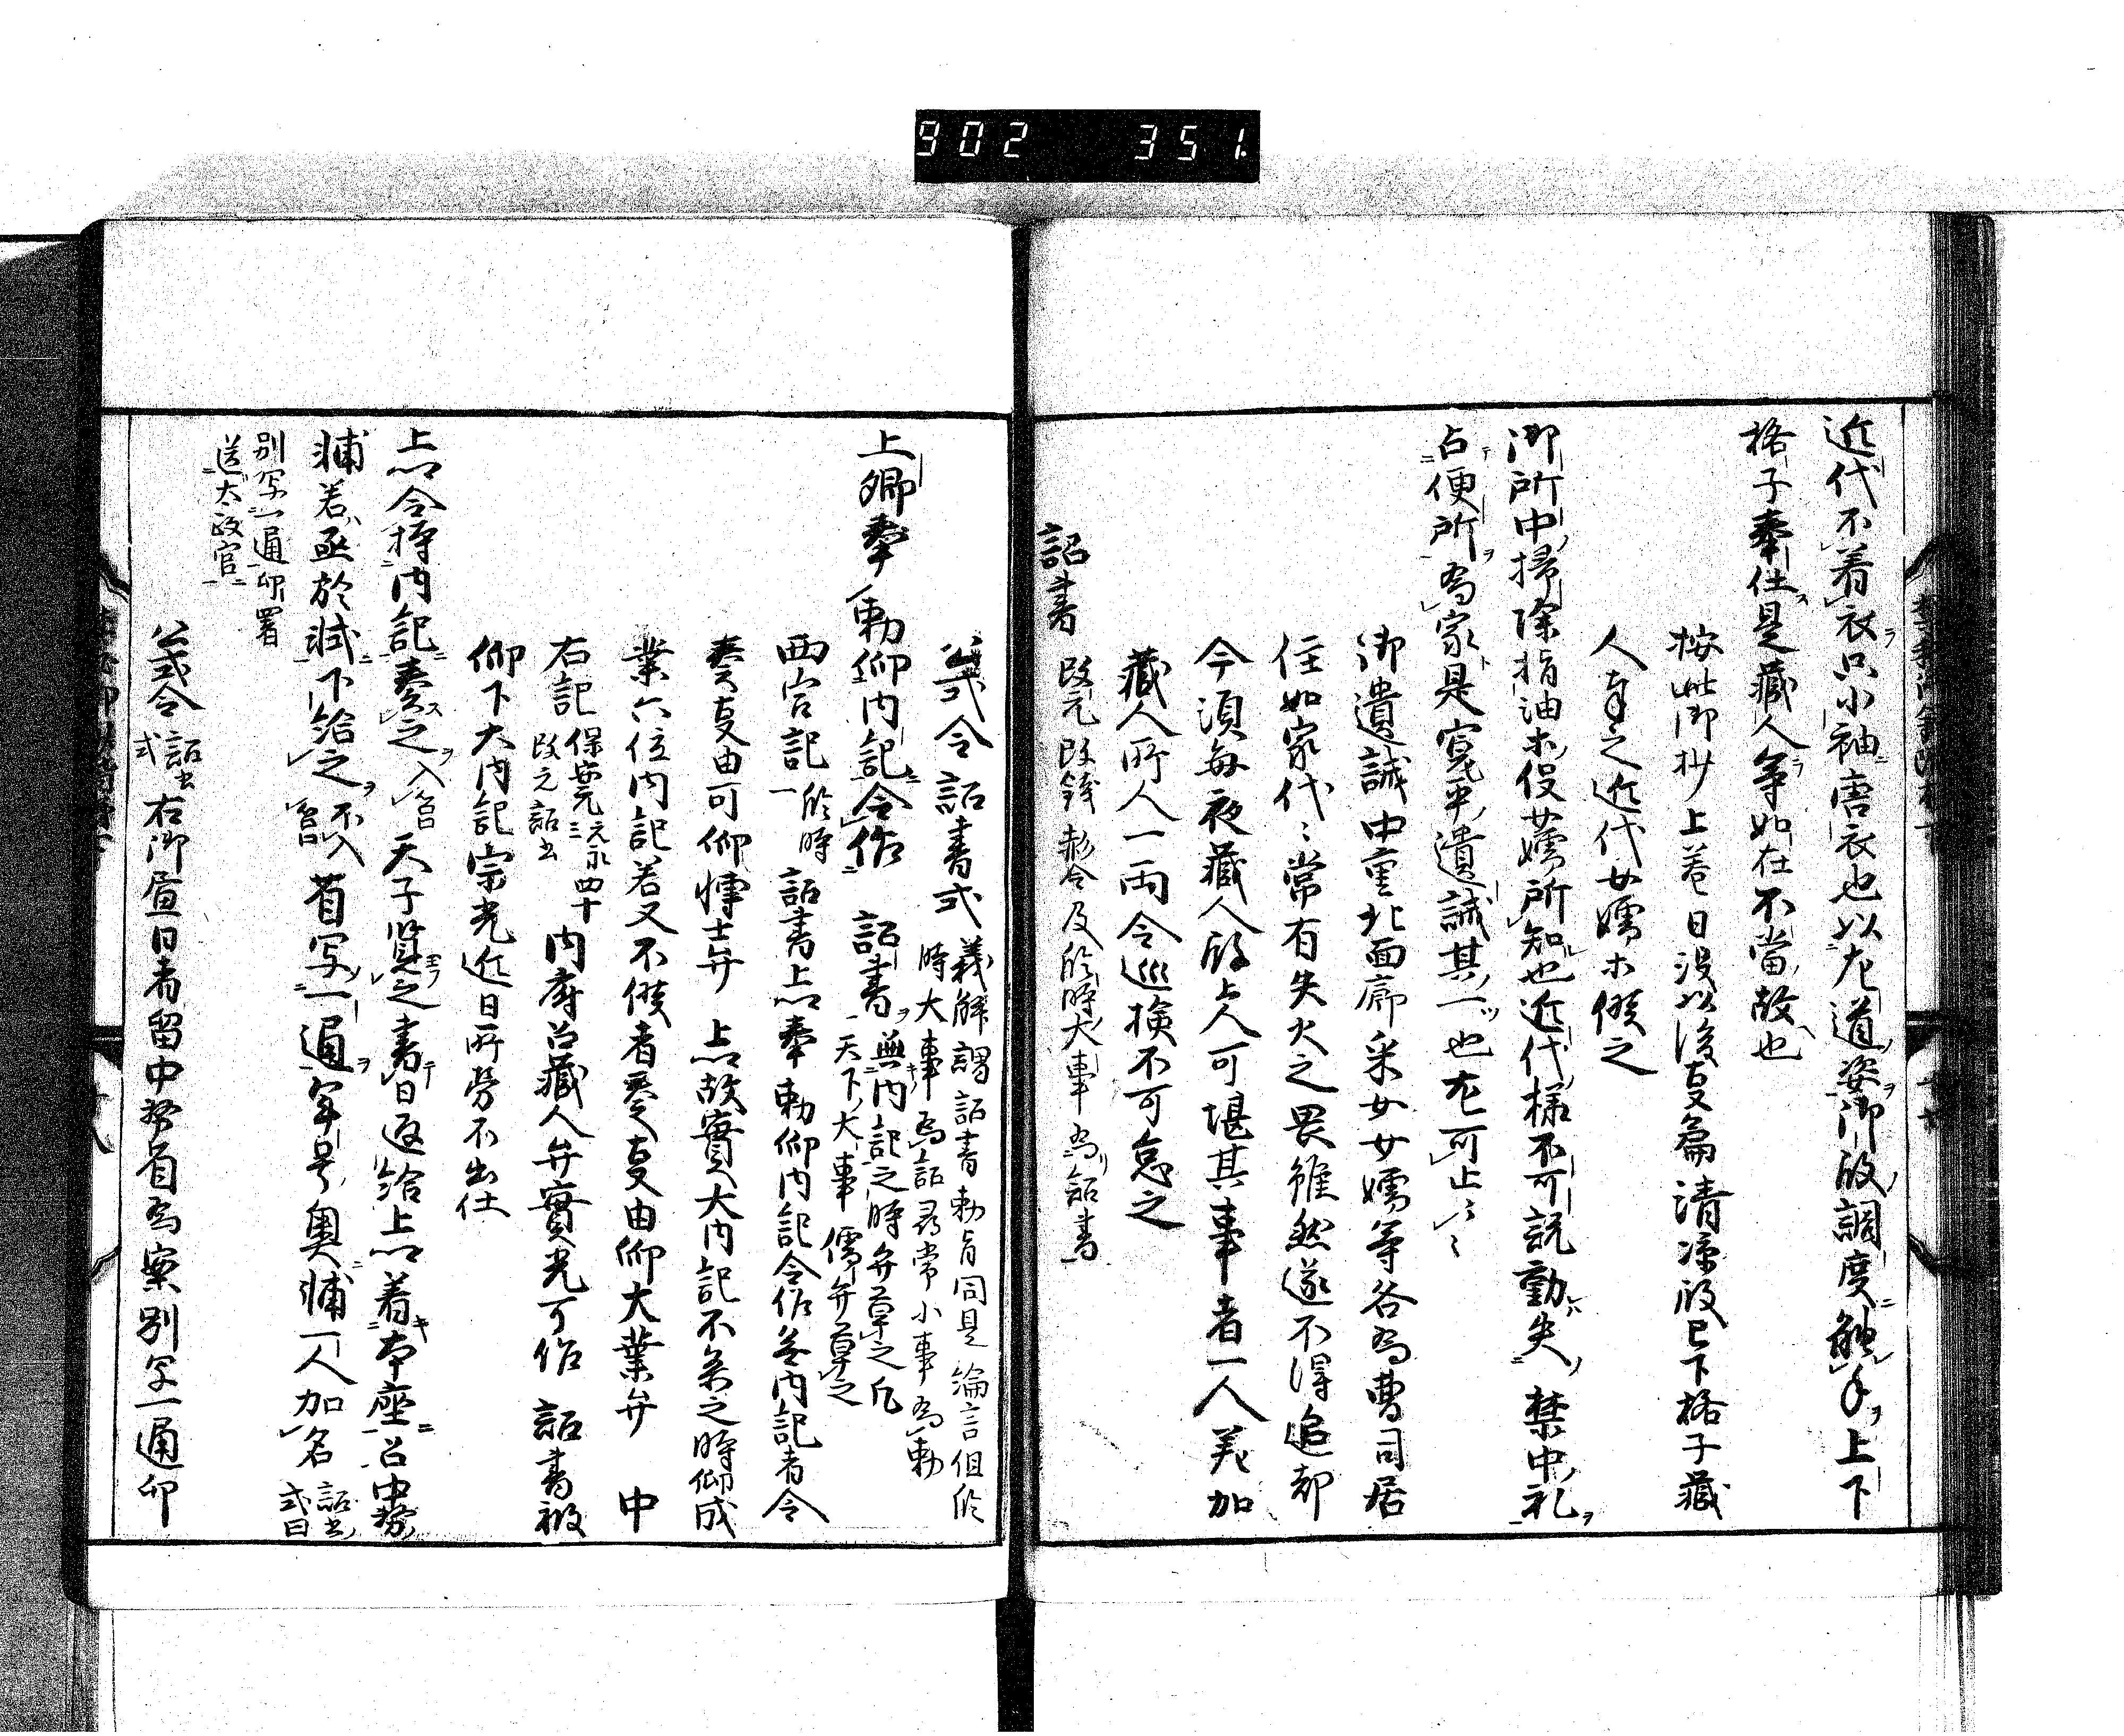 902 351
近代不着衣只小袖唐衣也以左道姿御殿調度触手上下
格子奉仕是蔵人等如在不当故也
按此御抄上巻日没以後事篇清涼殿已下格子蔵
人奉之近代女嬬ホ候之
御所中掃除指油ホ役女嬬所知也近代様不可説動失禁中礼
占便所為家是寛平遺誡其一也尤可止々々
御遺誡中重北面廊采女女嬬等各為曹司居
住如家代々常有失火之畏雖然遂不得追却
今須毎夜蔵人殿上人可堪其事者一人差加
蔵人所人一両令巡検不可怠之
詔書 改元改銭赦令及臨時大事為詔書
公式令詔書式 義解謂詔書勅旨同是綸言但臨
時大事為詔尋常小事為勅
上卿奉勅仰内記令作詔書 無内記之時弁草之凡
天下大事儒弁草之
西宮記 臨時一 詔書上卿奉勅仰内記令作無内記者令
奏事由可仰博士弁 上卿故実大内記不参之時仰成
業六位内記若又不候者奏事由仰大業弁 中
右記 保安元元永三四十改元詔書 内府召蔵人弁實光可作詔書被
仰下大内記宗光近日所労不出仕
上卿令持内記奏之 入筥 天子覧之書日返給上卿着本座召中務
輔若丞於軾下給之 不入筥 省写一通年号奥輔一人加名 詔書式曰
別写一通印署
送太政官
公式令 詔書式 右御画日者留中務省為案別写一通印